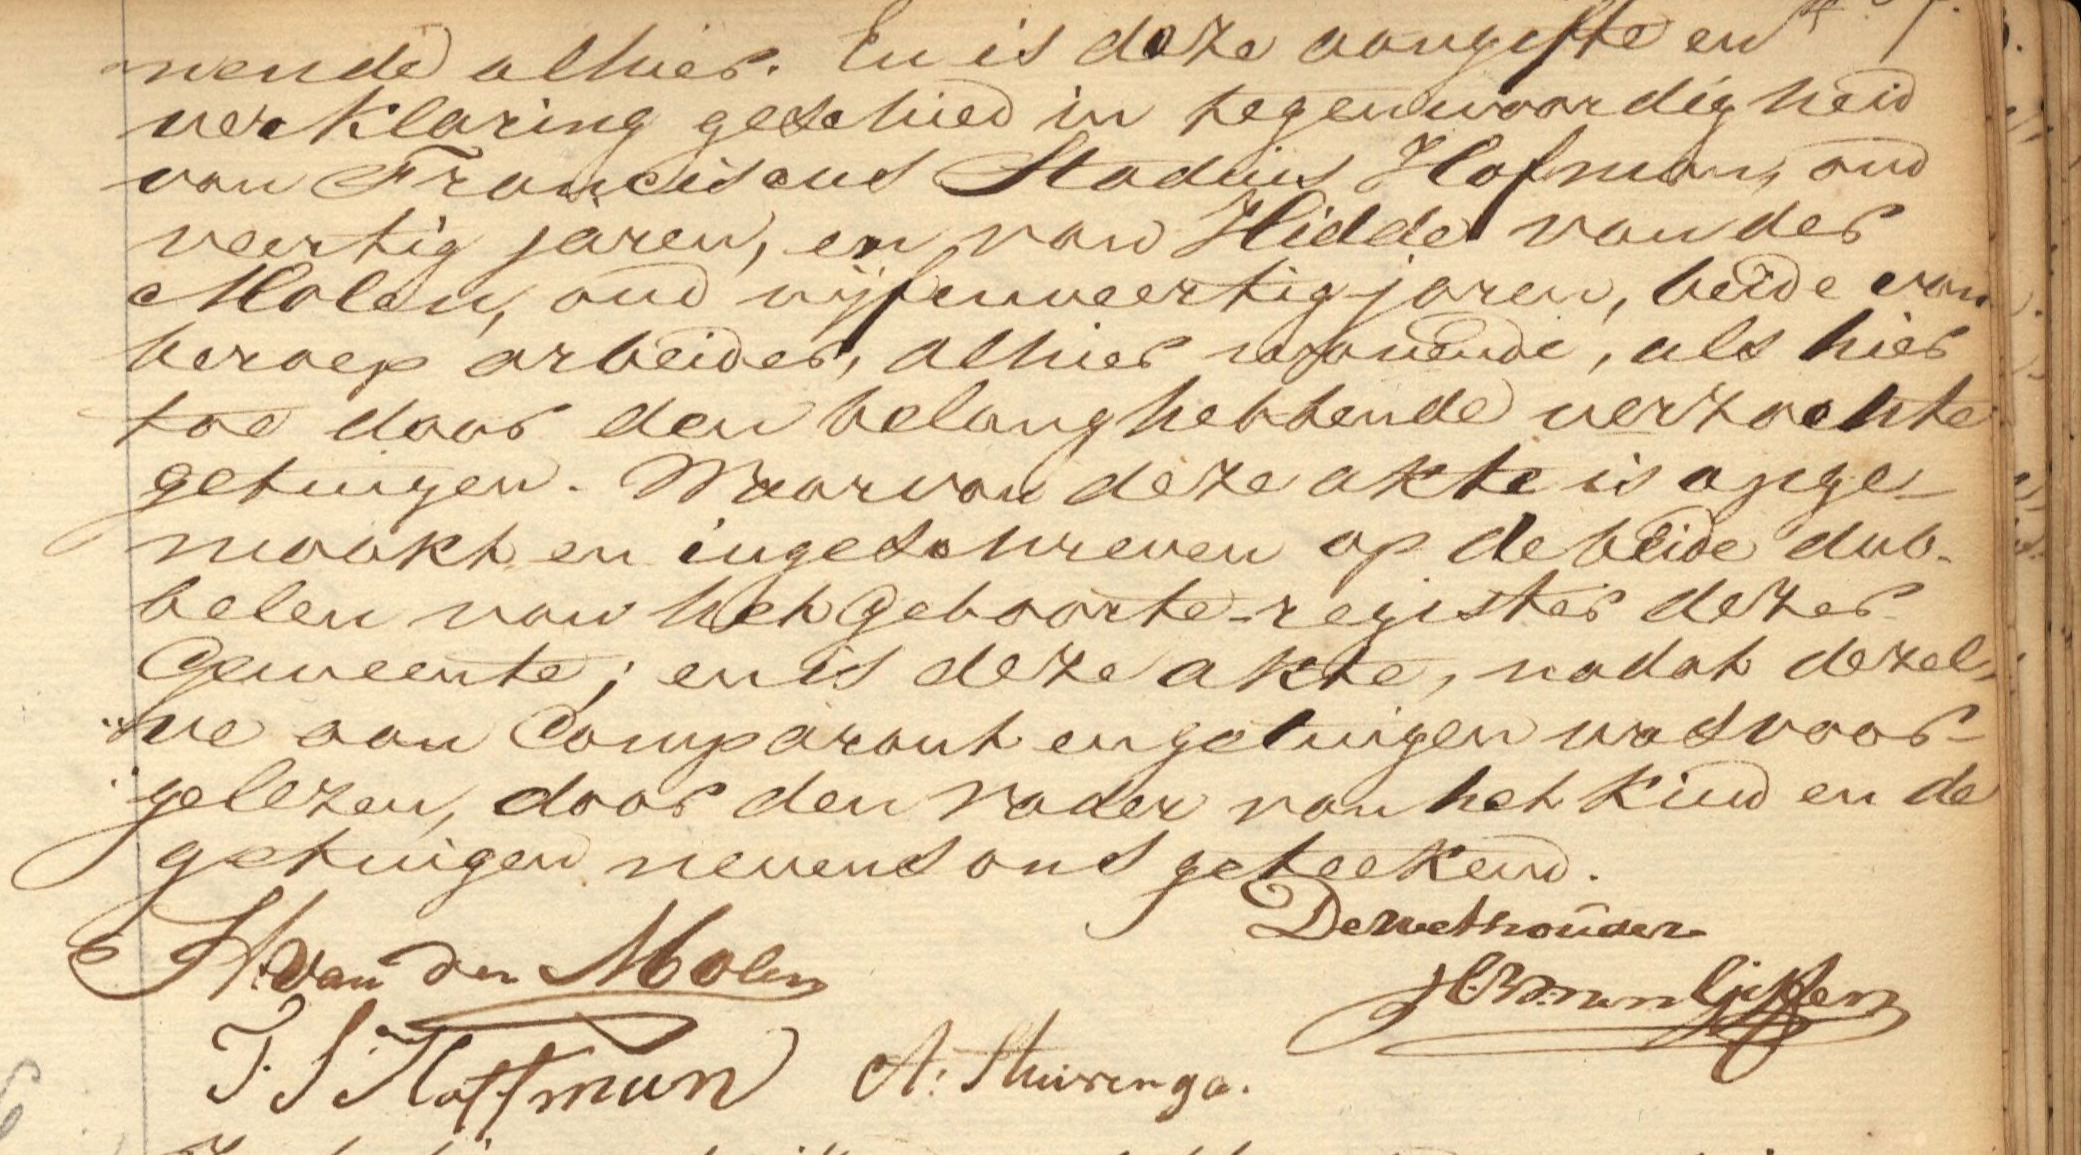 nende alhier. En is deze aangifte en
verklaring geschied in tegenwoordigheid
van Franciscus Stadius Hofman, oud
veertig jaren, en van Hidde van der
Molen, oud vijfenveertig jaren, beide van
beroep arbeider, alhier wonende, als hier
toe door den belanghebbende verzochte
getuigen. Waarvan deze akte is opge-
maakt en ingeschreven op de beide dub-
belen van het Geboorte-register dezer
Gemeente; en is deze akte, nadat dezel-
ve aan Comparant en getuigen was voor-
gelezen, door den Vader van het kind en de
getuigen nevens ons geteekend.
De wethouder
H. van der Molen
F. S. Hoffman A. Stuivenga.